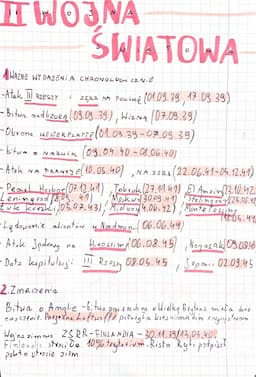 II WOJNA
ŚWIATOWA
1 WAŻNE WYDARZENIA CHRONOLOGICZNIE
-Atak III RZESZY i ZSRR NA POLSKĘ (01.09.39, 17.09.39)
-Bitwa nad BZURĄ (09.09.39), WIZNĄ (07.09.39)
-Obrona WESTERPLATTE (01.09.39-07.09.39)
-bitwa o NARWIK (09.04.40-08.06.40)
-Atak NA FRANCJĘ (10.05.40), NA ZSRR (22.06.41-04.12.41)
-Pearl Harbor (07.12.41), Tobruk (27.11.41) El Amein (23.10.42)
Leningrad (8.09.41) Moskwa (30.09.41) Stalingrad
Łuk kurski (05.07.43), Midway (4.06.42), Monte Cassino
-Lądowanie aliantów w Normandii (06.06.44)
-Atak Jądrowy na Hiroszimę (06.08.45), Nagasaki 09.08.45
-Data kapitulacji: III Rzeszy 08.05.45, Japonii 02.09.45
2. Znaczenia
Bitwa o Anglię - bitwa o Wielką Brytanię miała
Wojna zimowa ZSRR-FINLANDIA - 30.11.39/13.03.40.
Finlandia straciła 10% terytorium.